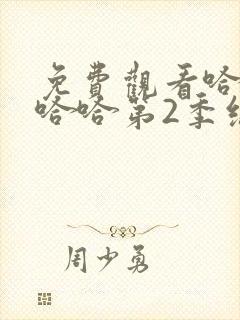 免費觀看哈
哈哈第2季
周少勇